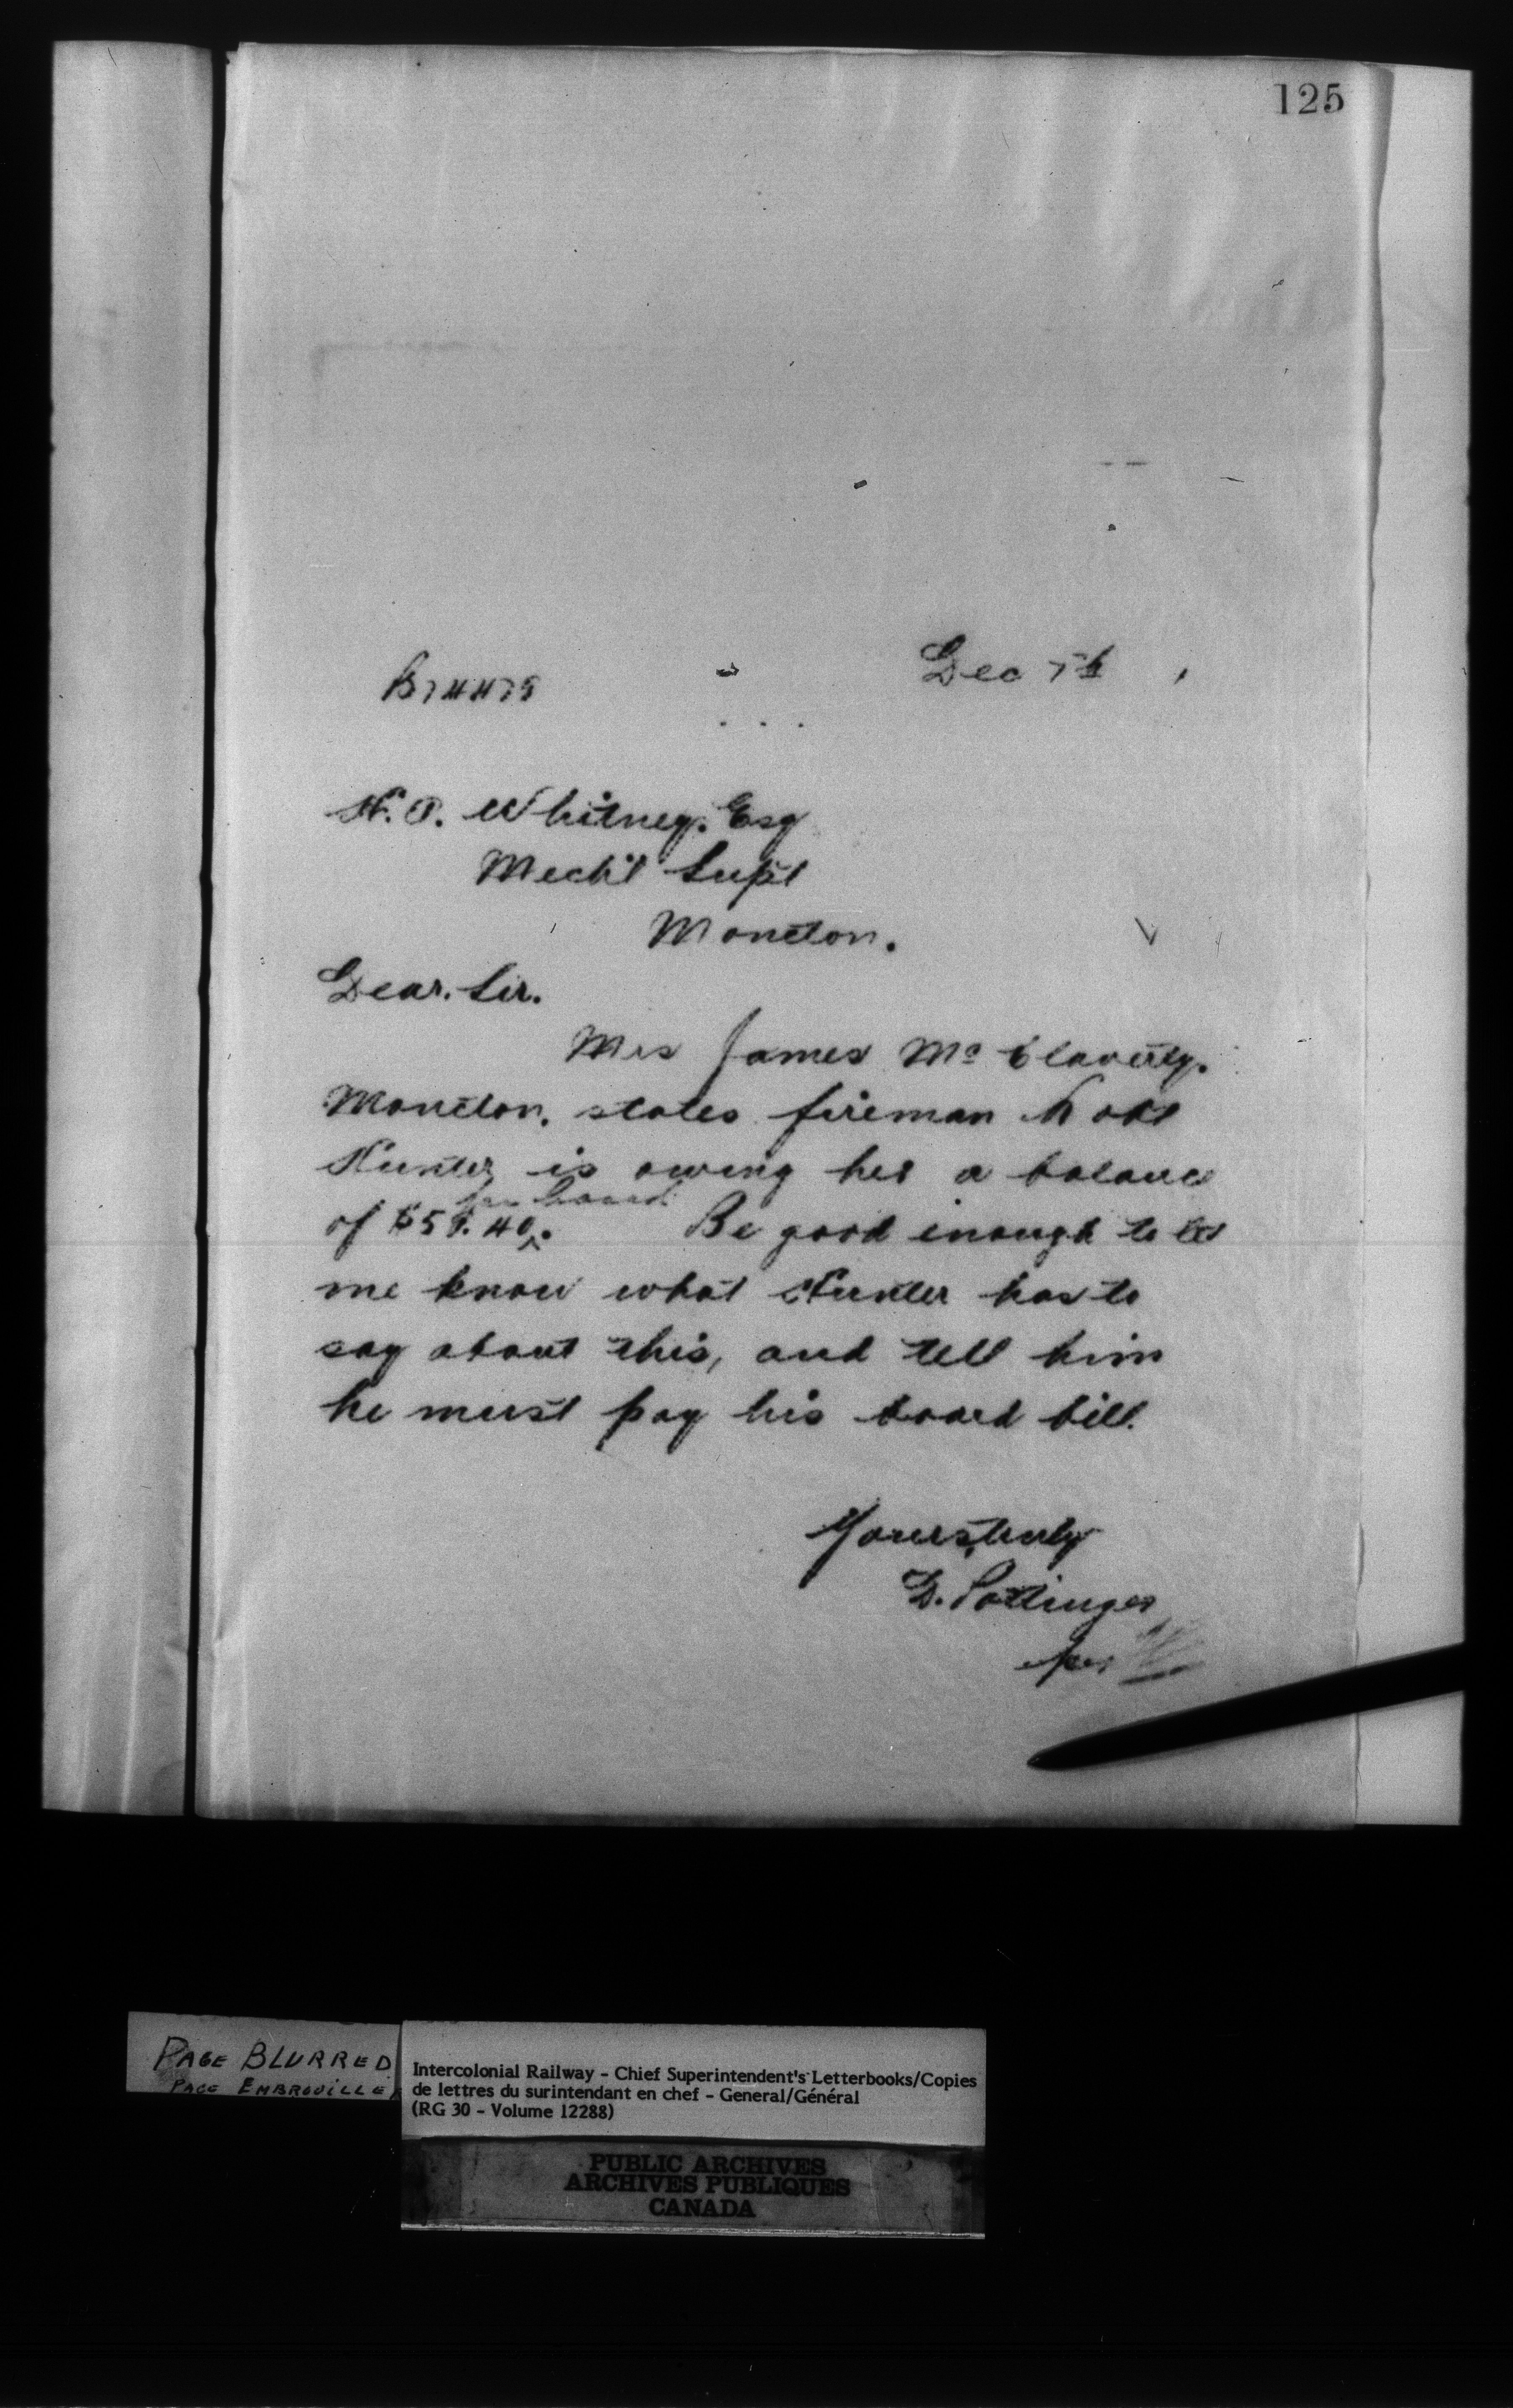 125
Dec 7th
H. P. Whitney. Esq
Mech'l Supt
Moncton.
Dear. Sir.
Mrs James Mc Claverty.
Moncton. states fireman
Hunter is owing her a balance
for board
of $59.40. Be good enough to let
me know what Hunter has to
say about this, and tell him
he must pay his board bill.
Yours truly
D. Pottinger
per
PAGE BLURRED
PAGE EMBROUILLE
Intercolonial Railway - Chief Superintendent's Letterbooks/Copies
de lettres du surintendant en chef - General/Général
(RG 30 - Volume 12288)
PUBLIC ARCHIVES
ARCHIVES PUBLIQUES
CANADA